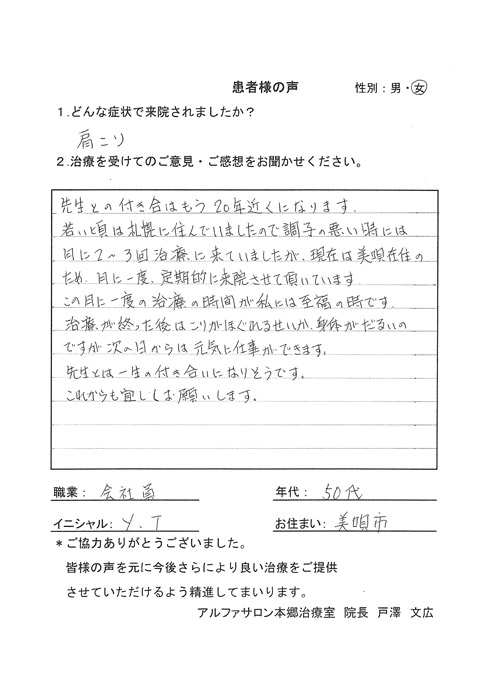 患者様の声
性別：男・女
１.どんな症状で来院されましたか？
肩こり
２.治療を受けてのご意見・ご感想をお聞かせください。
先生との付き合はもう20年近くになります.
若い頃は札幌に住んでいましたので調子の悪い時には
月に2～3回治療に来ていましたが、現在は美唄在住の
ため、月に一度、定期的に来院させて頂いています.
この月に一度の治療の時間が私には至福の時です.
治療が終った後はこりがほぐれるせいか、身体がだるいの
ですが次の日からは元気に仕事ができます。
先生とは一生の付き合いになりそうです。
これからも宜しくお願いします。
職業： 会社員
年代： 50代
イニシャル： Y.T
お住まい： 美唄市
＊ご協力ありがとうございました。
皆様の声を元に今後さらにより良い治療をご提供
させていただけるよう精進してまいります。
アルファサロン本郷治療室 院長 戸澤 文広